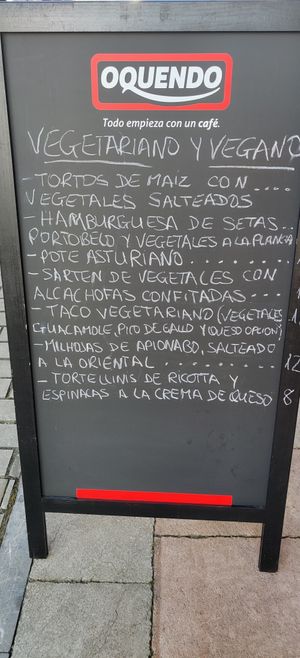 OQUENDO
Todo empieza con un café.
VEGETARIANO Y VEGANO
- TORTOS DE MAIZ CON ....
VEGETALES SALTEADOS
- HAMBURGUESA DE SETAS..
PORTOBELO Y VEGETALES A LA PLANCHA
- POTE ASTURIANO ........
- SARTEN DE VEGETALES CON
ALCACHOFAS CONFITADAS ---
- TACO VEGETARIANO (VEGETALES
GUACAMOLE, PICO DE GALLO Y QUESO OPCION)
- MILHOJAS DE APIONABO, SALTEADO
A LA ORIENTAL ........ 12
- TORTELLINIS DE RICOTTA Y
ESPINACAS A LA CREMA DE QUESO 8